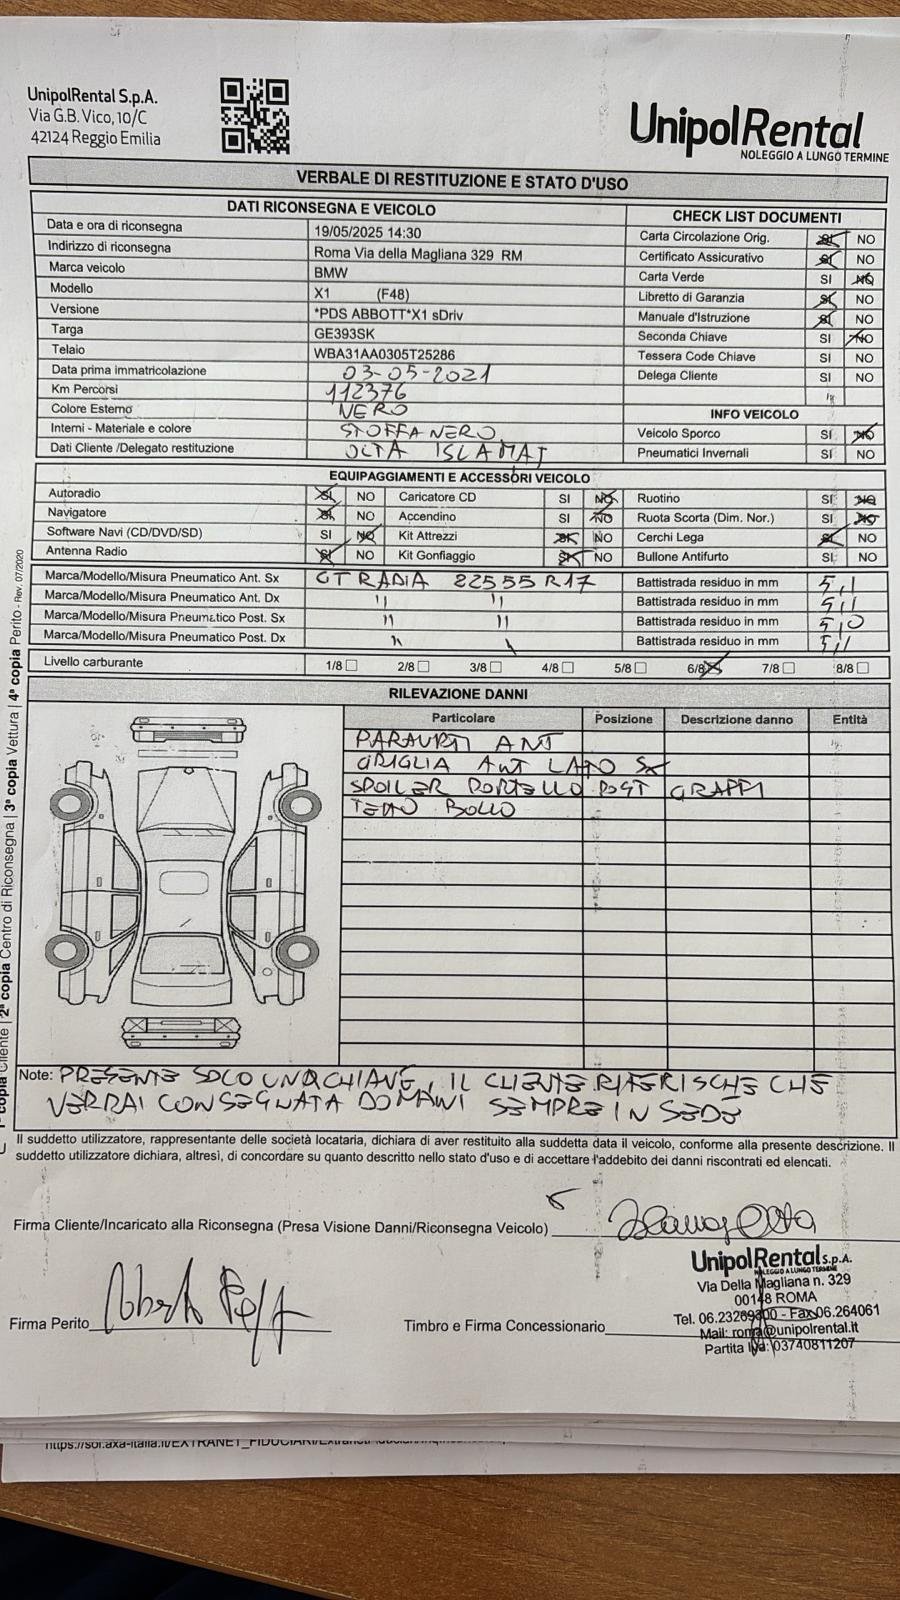 UnipolRental S.p.A.
Via G.B. Vico, 10/C
42124 Reggio Emilia
UnipolRental
NOLEGGIO A LUNGO TERMINE
VERBALE DI RESTITUZIONE E STATO D'USO
DATI RICONSEGNA E VEICOLO
Data e ora di riconsegna 19/05/2025 14:30
Indirizzo di riconsegna Roma Via della Magliana 329 RM
Marca veicolo BMW
Modello X1 (F48)
Versione *PDS ABBOTT*X1 sDriv
Targa GE393SK
Telaio WBA31AA0305T25286
Data prima immatricolazione 03-05-2021
Km Percorsi 112376
Colore Esterno NERO
Interni - Materiale e colore STOFFA NERO
Dati Cliente /Delegato restituzione OLTA ISLAMAJ
CHECK LIST DOCUMENTI
Carta Circolazione Orig. SI NO
Certificato Assicurativo SI NO
Carta Verde SI NO
Libretto di Garanzia SI NO
Manuale d'Istruzione SI NO
Seconda Chiave SI NO
Tessera Code Chiave SI NO
Delega Cliente SI NO
INFO VEICOLO
Veicolo Sporco SI NO
Pneumatici Invernali SI NO
EQUIPAGGIAMENTI E ACCESSORI VEICOLO
Autoradio SI NO Caricatore CD SI NO Ruotino SI NO
Navigatore SI NO Accendino SI NO Ruota Scorta (Dim. Nor.) SI NO
Software Navi (CD/DVD/SD) SI NO Kit Attrezzi SI NO Cerchi Lega SI NO
Antenna Radio SI NO Kit Gonfiaggio SI NO Bullone Antifurto SI NO
Marca/Modello/Misura Pneumatico Ant. Sx GT RADIA 22555 R17 Battistrada residuo in mm 5,1
Marca/Modello/Misura Pneumatico Ant. Dx " " Battistrada residuo in mm 5,1
Marca/Modello/Misura Pneumatico Post. Sx " " Battistrada residuo in mm 5,0
Marca/Modello/Misura Pneumatico Post. Dx " " Battistrada residuo in mm 5,1
Livello carburante 1/8 2/8 3/8 4/8 5/8 6/8 7/8 8/8
RILEVAZIONE DANNI
Particolare Posizione Descrizione danno Entità
PARAURTI ANT
GRIGLIA ANT LATO SX
SPOILER PORTELLO POST GRAFFI
TETTO BOLLO
Note: PRESENTE SOLO UNA CHIAVE, IL CLIENTE RIFERISCHE CHE
VERRAI CONSEGNATA DOMANI SEMPRE IN SEDE
Il suddetto utilizzatore, rappresentante delle società locataria, dichiara di aver restituito alla suddetta data il veicolo, conforme alla presente descrizione. Il
suddetto utilizzatore dichiara, altresì, di concordare su quanto descritto nello stato d'uso e di accettare l'addebito dei danni riscontrati ed elencati.
Firma Cliente/Incaricato alla Riconsegna (Presa Visione Danni/Riconsegna Veicolo)
Firma Perito
Timbro e Firma Concessionario
UnipolRental S.p.A.
NOLEGGIO A LUNGO TERMINE
Via Della Magliana n. 329
00148 ROMA
Tel. 06.23269300 - Fax 06.264061
Mail: roma@unipolrental.it
Partita Iva: 03740811207
copia Cliente | 2ª copia Centro di Riconsegna | 3ª copia Vettura | 4ª copia Perito - Rev. 07/2020